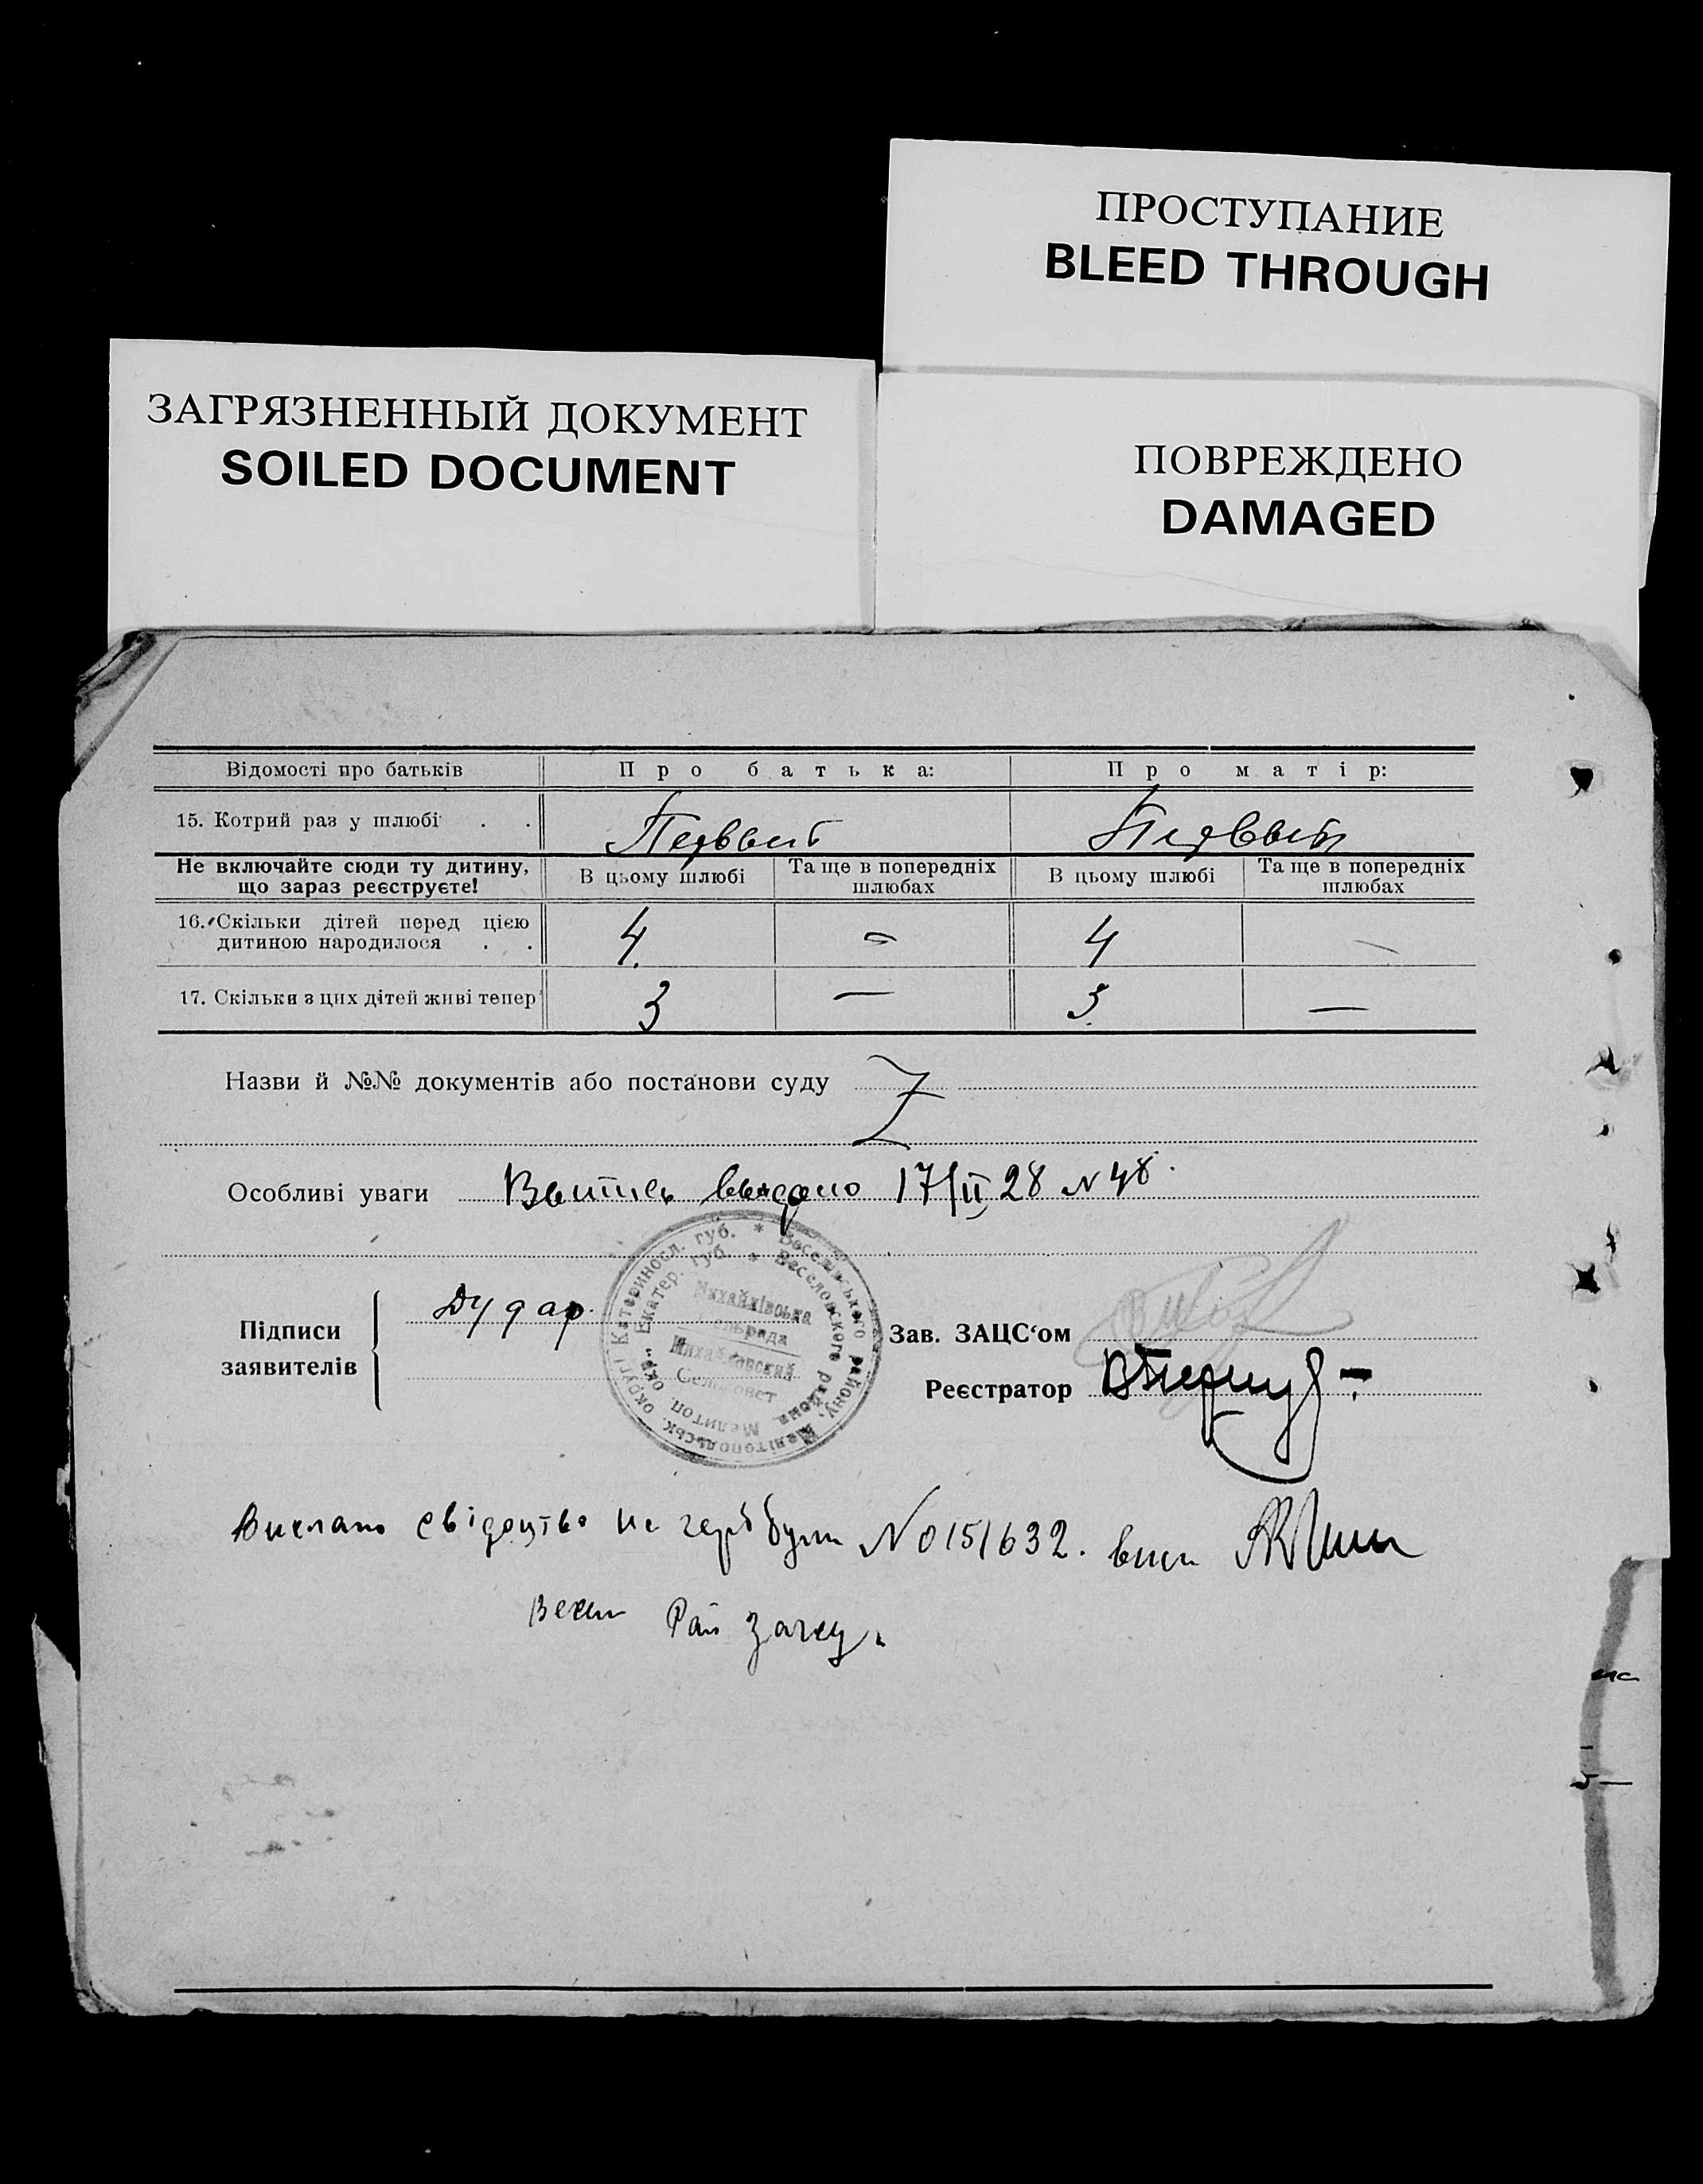 ПРОСТУПАНИЕ
BLEED THROUGH
ЗАГРЯЗНЕННЫЙ ДОКУМЕНТ
SOILED DOCUMENT
ПОВРЕЖДЕНО
DAMAGED
Відомості про батьків Про батька: Про матір:
15. Котрий раз у шлюбі . . Первый Первый
Не включайте сюди ту дитину, що зараз реєструєте! В цьому шлюбі Та ще в попередніх шлюбах В цьому шлюбі Та ще в попередніх шлюбах
16. Скільки дітей перед цією 4 — 4 —
дитиною народилося . .
17. Скільки з цих дітей живі тепер 3 — 3 —
Назви й №№ документів або постанови суду
Особливі уваги Выпись выдано 17/II 28 N 48.
Катериносл. губ. * Веселівського району, Мелітопольськ. округі
Екатер. губ. * Веселовского района Мелитоп. окр.
Михайлівська
сельрада
Михайловский
Сельсовет
Підписи заявителів Дудар.
Зав. ЗАЦС'ом
Реєстратор
свідоцтво на No 151632.
Рай
мс
5—